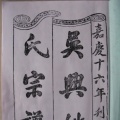 嘉慶十六年刊
吳興
氏宗譜